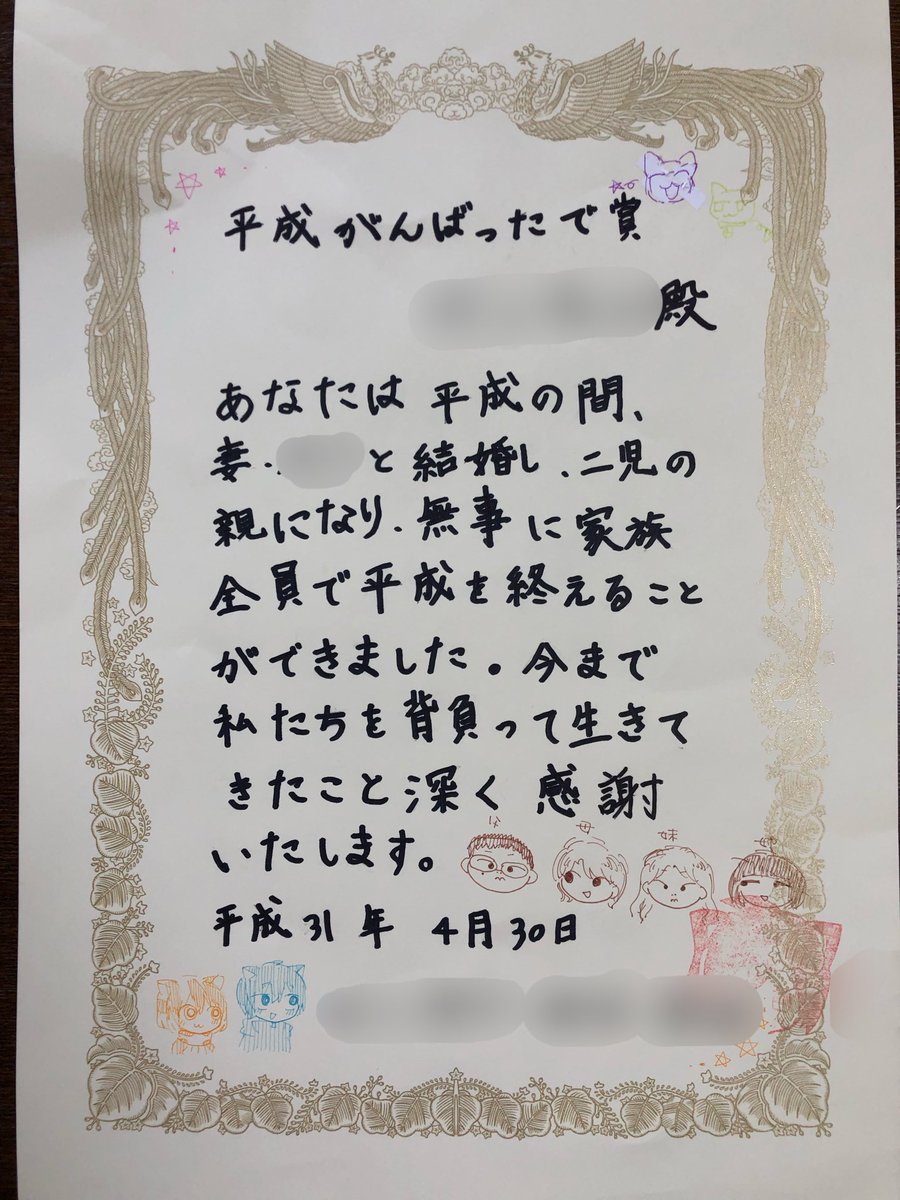 平成がんばったで賞
殿
あなたは平成の間、
妻・と結婚し、二児の
親になり、無事に家族
全員で平成を終えること
ができました。今まで
私たちを背負って生きて
きたこと深く感謝
いたします。
父 母 妹
平成31年 4月30日